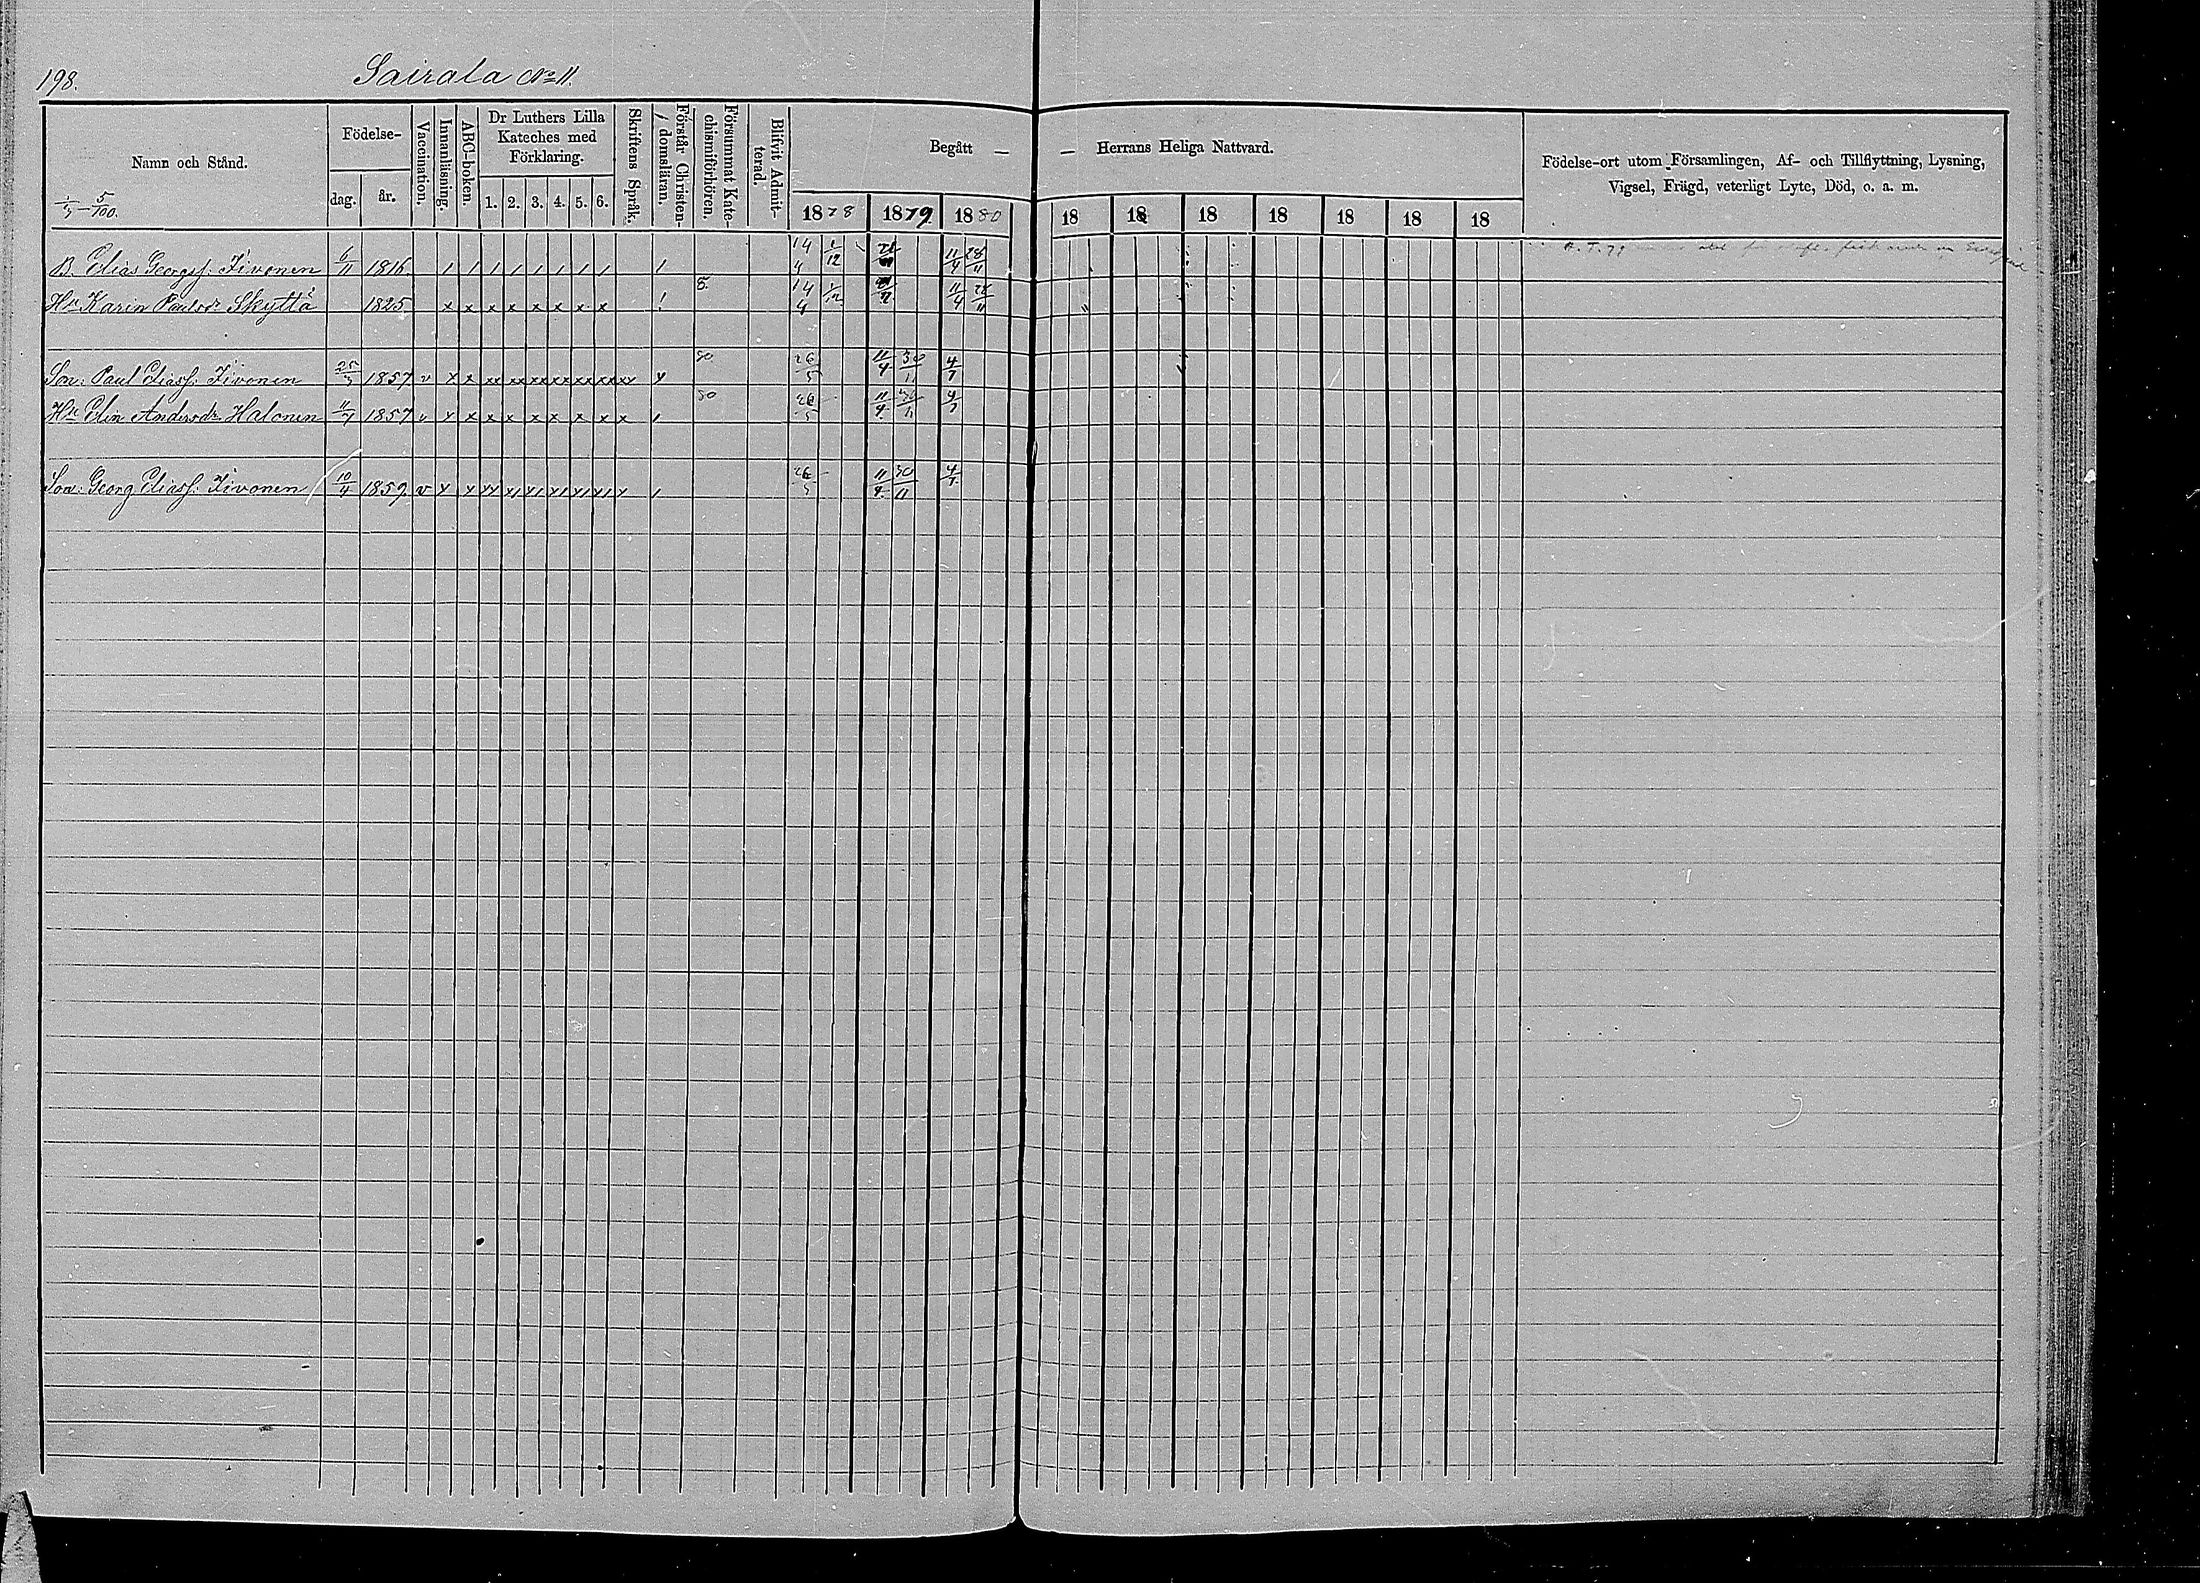 198.
Sairala No 11.
Namn och Stånd.
5/100.
Födelse-
dag.
år.
Vaccination.
Innanläsning.
ABC-boken.
Dr Luthers Lilla
Kateches med
Förklaring.
1. 2. 3. 4. 5. 6.
Skriftens Språk.
Förstår Christen-
domsläran.
Försummat Kate-
chismiförhören.
Blifvit Admit-
terad.
Begått —
— Herrans Heliga Nattvard.
1878 1879. 1880
18 18 18 18 18 18 18
Födelse-ort utom Församlingen, Af- och Tillflyttning, Lysning,
Vigsel, Frägd, veterligt Lyte, Död, o. a. m.
B. Elias Georgsf. Iivonen 6/11 1816. / / / / / / / / / 14/4 1/12 11/4 28/11
Hu Karin Paulsdr Skyttä 1825. x x x x x x x x / 14/4 1/12 11/4 28/11
Son: Paul Eliasf. Iivonen 25/5 1857 v x x xx xx xx xx xx xx xx x 80 26/5 11/4 30/11 4/7
Hu Elin Andersdr Halonen 11/7 1857 v x x x x x x x x x / 80 26/5 11/4 30/11 4/7
Son: Georg Eliasf. Iivonen 10/4 1859. v x x xx x/ x/ x/ x/ x/ x / 26/5 11/4 30/11 4/7